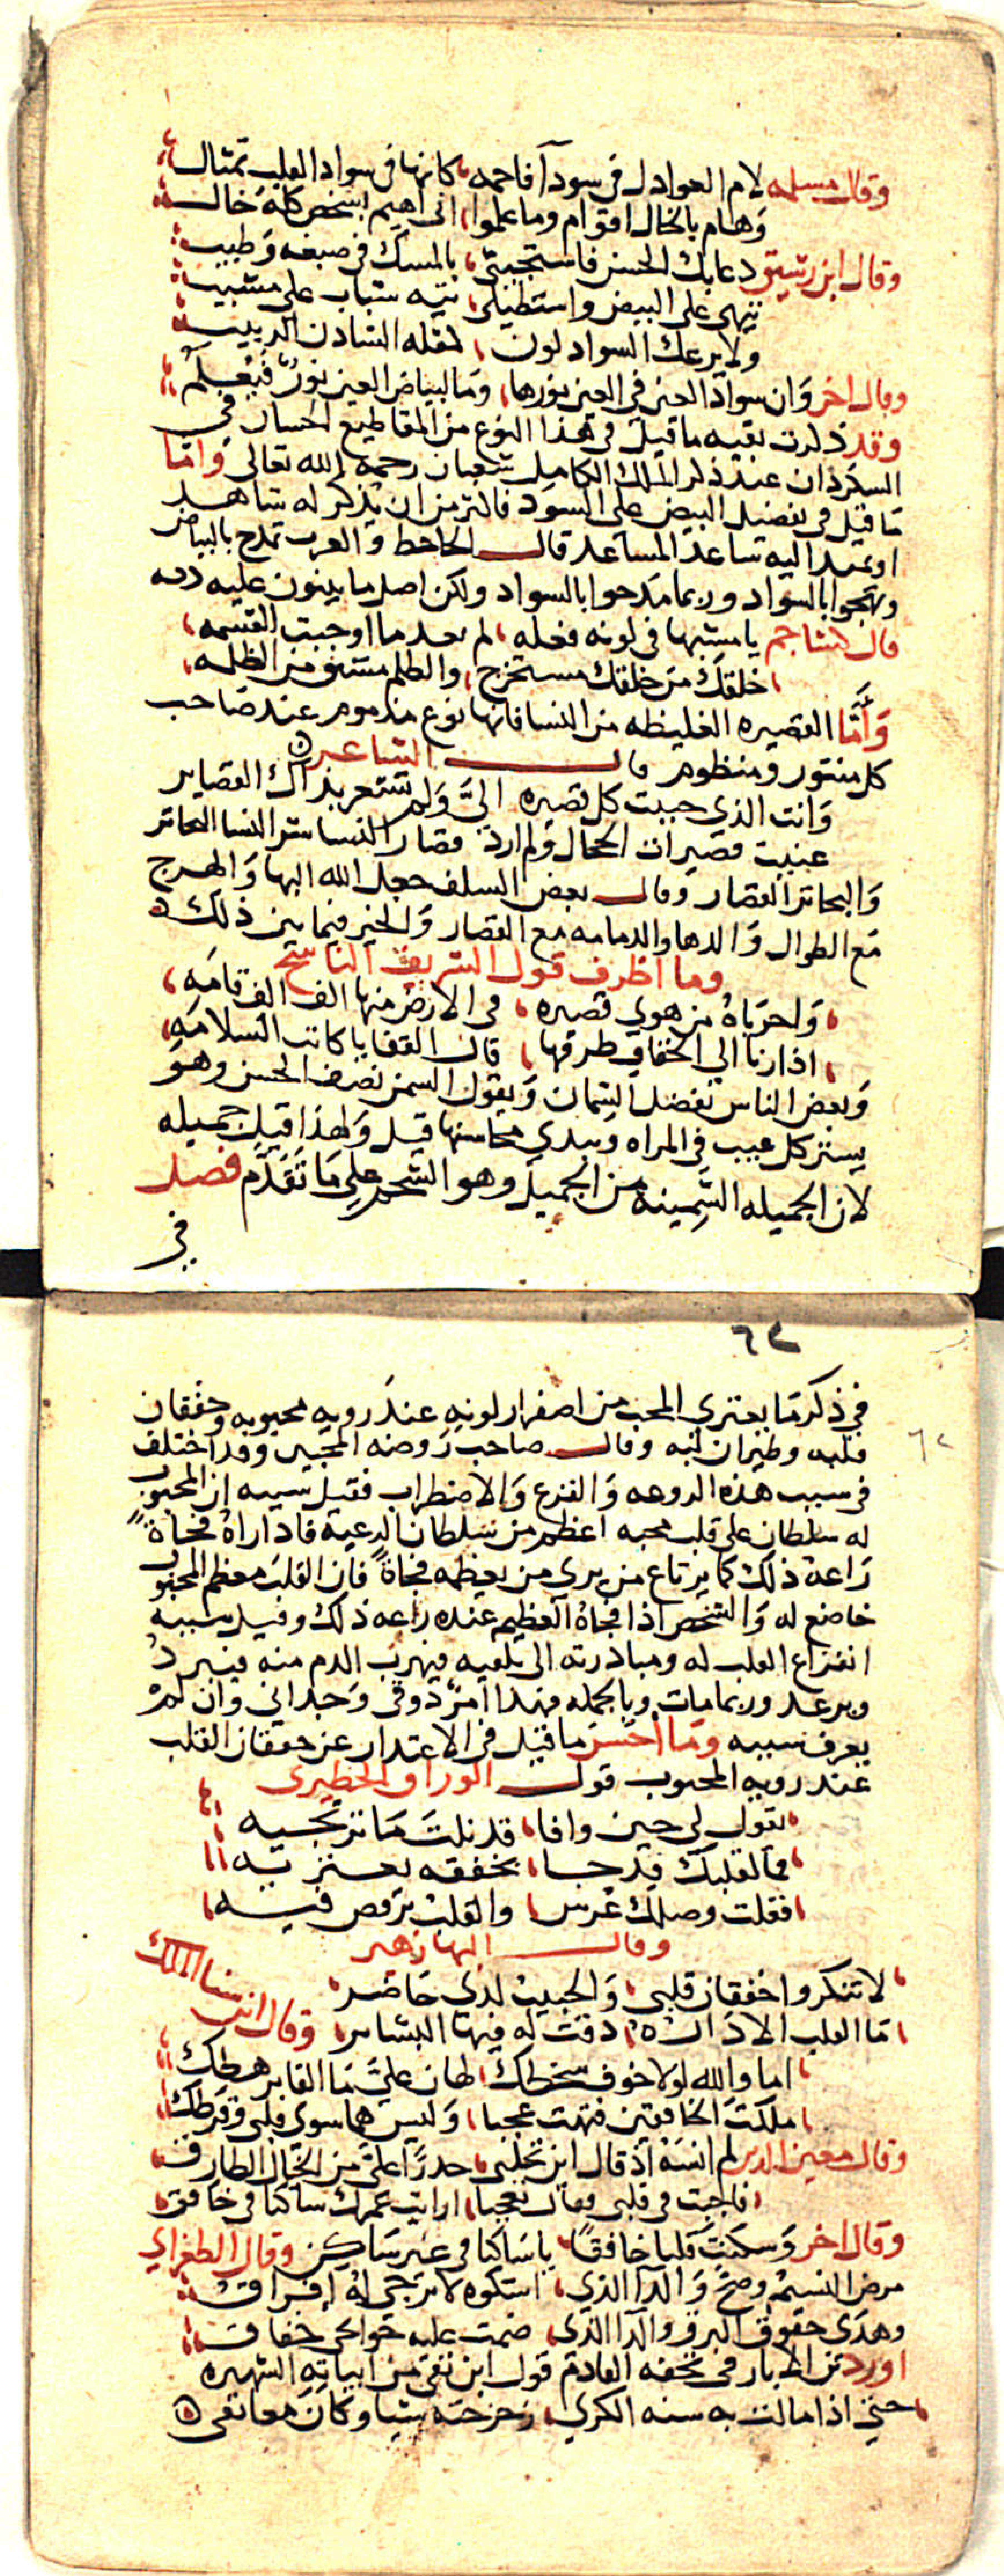 وقال مسلمه لام العوادل في سودآ فاحمه كانها في سواد القلب تمثال
وهام بالخال اقوام وما علموا اني اهيم بشخص كله خال
وقال ابن رشيق دعا بك الحسن فاستجيبي بالمسك في صبغه وطيب
تيهي على البيض واستطيلي تيه شباب على مشيب
ولا يرعك اسوداد لون كمقله الشادن الربيب
وقال اخر وان سواد العين في العين نورها وما لبياض العين نور فيعلم
وقد ذكرت بقيه ما قيل في هذا النوع من المقاطيع الحسان في
السكردان عند ذكر الملك الكامل شعبان رحمه الله تعالى واما
ما قيل في تفضيل البيض على السود فاكثر من ان يذكر له شاهد
او تمتد اليه ساعد المساعد قال الجاحظ والعرب تمدح بالبياض
وتهجوا بالسواد وربما مدحوا بالسواد ولكن اصل ما يبنون عليه
قال كشاجم يا مشبها في لونه فعله لم يعد ما اوجبت القسمه
خلقك من خلقك مستخرج والظلم مشتق من الظلمه
وأمّا القصيره الغليظه من النسا فانها نوع مذموم عند صاحب
كل منثور ومنظوم قال الشاعر
وانت الذي حببت كل قصيره اليّ ولم تشعر بذاك القصاير
عنيت قصيرات الحجال ولم ارد قصار النسا شر النسا البحاتر
والبحاتر القصار وقال بعض السلف جعل الله البها والهرج
مع الطوال والدها والدمامه مع القصار والخير فيما بين ذلك
وما اظرف قول الشريف الناسخ
واحرباه من هوي قصيره في الارض منها الف الف قامه
اذا رنا الي الخفاف طرفها قال القفا يا كاتب السلامه
وبعض الناس تفضل السمان ويقول السمن نصف الحسن وهو
يستر كل عيب في المراه ويبدي محاسنها قيل ولهذا قيل جميله
لان الجميله السمينه من الجميل وهو الشحم على ما تقدم فصل
في
٦٢
في ذكر ما يعتري المحب من اصفرار لونه عند رويه محبوبه وخفقان
قلبه وطيران لبه وقال صاحب روضه المحبين وقد اختلف
في سبب هذه الروعه والفزع والاضطراب فقيل سببه ان المحبوب
له سلطان على قلب محبه اعظم من سلطان الرعيه فاذا راه فجاة
راعه ذلك كما يرتاع من يرى من يعظمه فجاة فان القلب معظم لمحبوب
خاضع له والشخص اذا فجاه العظيم عنده راعه ذلك وقيل سببه
انفراع القلب له ومبادرته الى تلقيه فيهرب الدم منه فيبرد
ويرعد وربما مات وبالجمله فهذا امر ذوقي وجداني وان لم
يعرف سببه وما احسن ما قيل في الاعتذار عن خفقان القلب
عند رويه المحبوب قول الوراق الحظيرى
يقول لي حين وافا قد نلت ما ترتجيه
فما لقلبك قد جا بخفقه تعتريه
فقلت وصلك عرس والقلب يرقص فيه
وقال البها زهير
لا تنكروا خفقان قلبي والحبيب لدي حاضر
ما القلب الا داره دقت له فيها البشاير وقال ابن سنا الملك
اما والله لولا خوف سخطك لهان علي ما القا برهطك
ملكت الخافقين فتهت عجبا وليس هما سوى قلبي وقرطك
وقال معين الدين لم انسه اذ قال اين تحلني حذرا علي من الخيال الطارق
فاجبت في قلبي فقال تعجبا ارايت عمرك ساكنا في خافق
وقال اخر وسكنت قلبا خافقا يا ساكنا في غير ساكن وقال الطغراي
مرض النسيم وصح والدا الذي اشكوه لا يرجى له افراق
وهدى خفوق البرق والدا الذي ضمت عليه جوانحي خفاق
اورد ابن الابار في تحفه القادم قول ابن بقي من ابياته الشهيره
حتى اذا مالت به سنه الكرى زحزحته شيا وكان معانقي